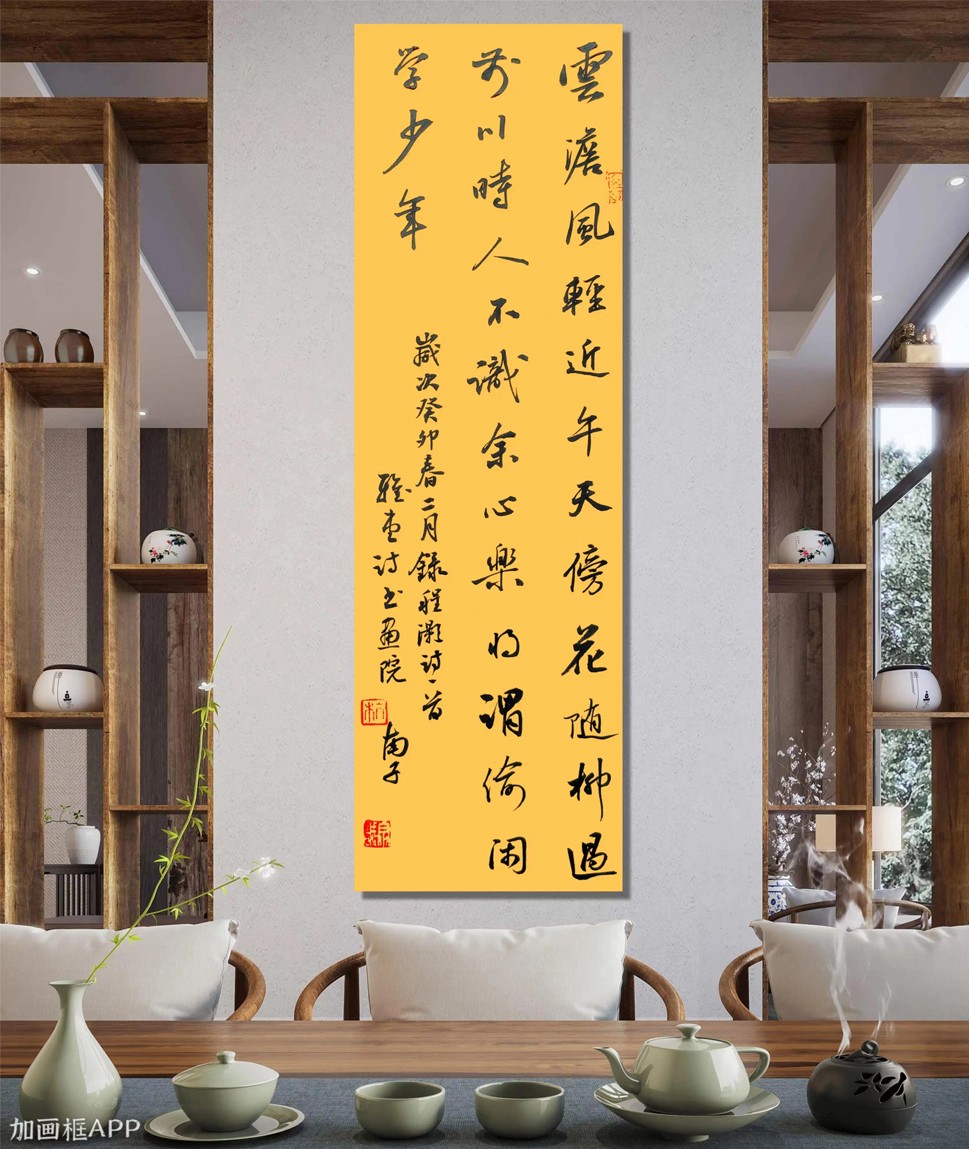 雲澹風輕近午天傍花随柳過
前川時人不識余心樂将謂偷闲
学少年
歲次癸卯春二月錄程灏诗一首
雅诗书画院
南子
加画框APP